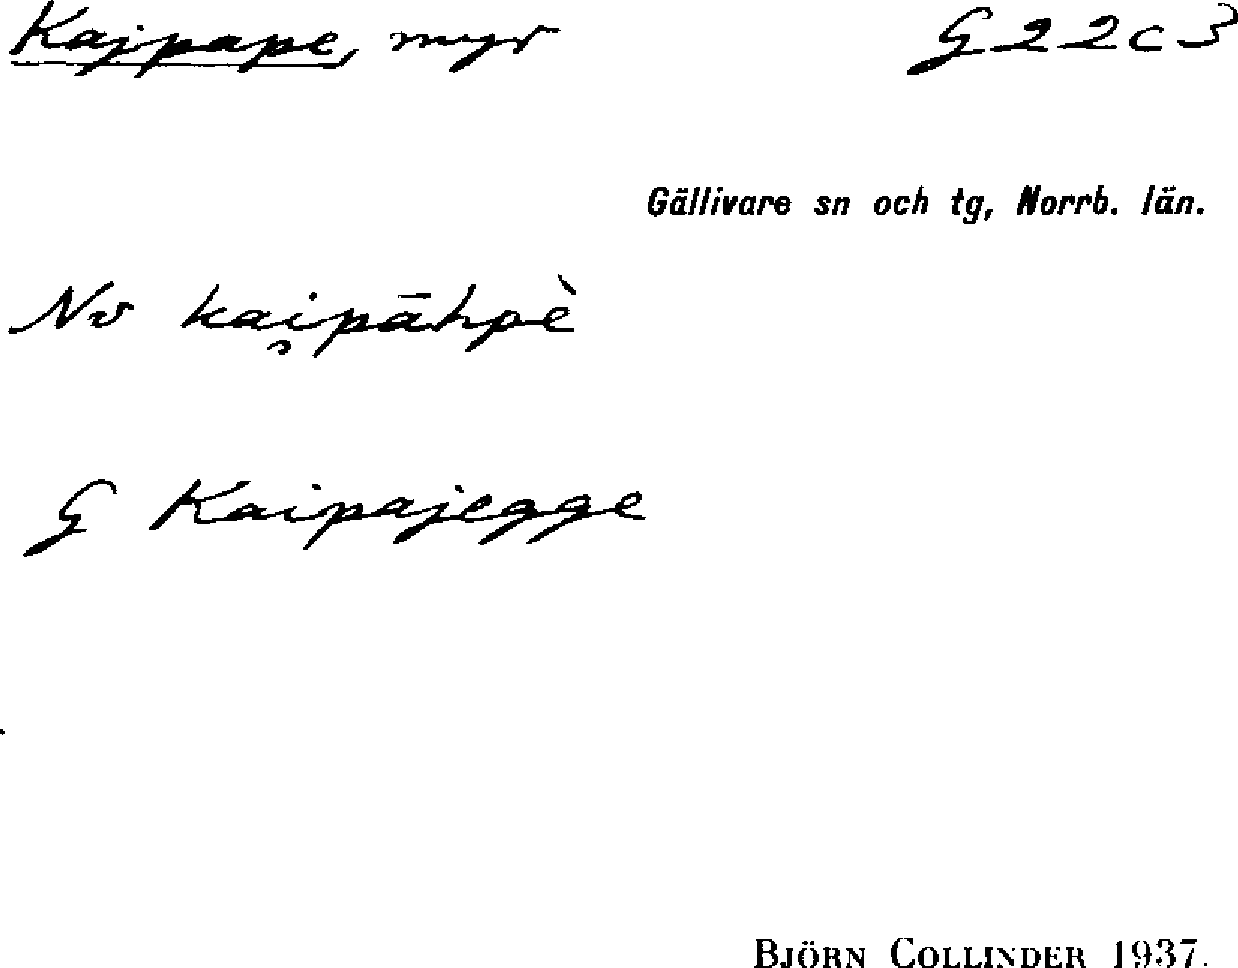 Kajpape, myr G22c3
Gällivare sn och tg, Norrb. län.
Nv kai̯pāhpè
G Kaipajegge
BJÖRN COLLINDER 1937.